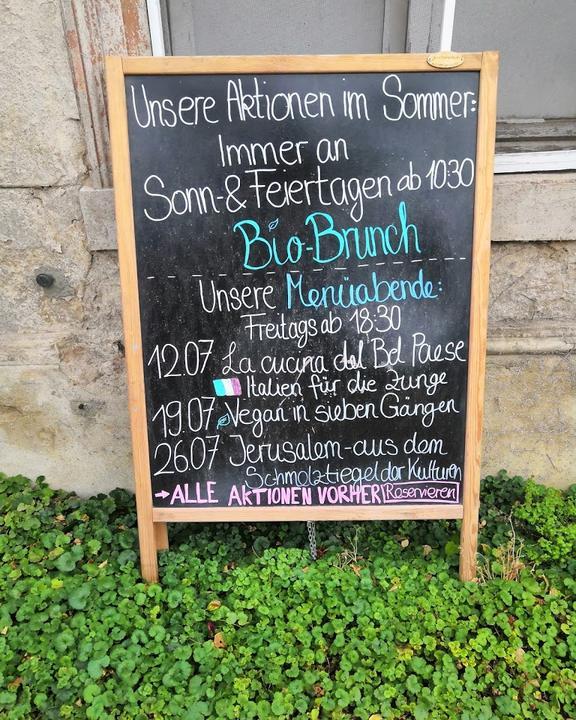 Unsere Aktionen im Sommer:
Immer an
Sonn-&Feiertagen ab 10:30
Bio-Brunch
Unsere Menüabende:
Freitags ab 18:30
12.07 La cucina del Bel Paese
Italien für die Zunge
19.07 Vegan in sieben Gängen
26.07 Jerusalem-aus dem
Schmelztiegel der Kulturen
→ALLE AKTIONEN VORHER Reservieren